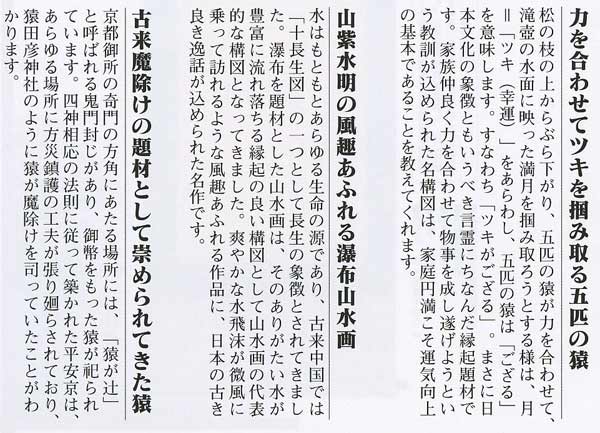 力を合わせてツキを掴み取る五匹の猿
松の枝の上からぶら下がり、五匹の猿が力を合わせて、
滝壺の水面に映った満月を掴み取ろうとする様は、月
＝「ツキ（幸運）」をあらわし、五匹の猿は「ござる」
を意味します。すなわち「ツキがござる」。まさに日
本文化の象徴ともいうべき言霊にちなんだ縁起題材で
す。家族仲良く力を合わせて物事を成し遂げようとい
う教訓が込められた名構図は、家庭円満こそ運気向上
の基本であることを教えてくれます。
山紫水明の風趣あふれる瀑布山水画
水はもともとあらゆる生命の源であり、古来中国では
「十長生図」の一つとして長生の象徴とされてきまし
た。瀑布を題材とした山水画は、そのありがたい水が
豊富に流れ落ちる縁起の良い構図として山水画の代表
的な構図となってきました。爽やかな水飛沫が微風に
乗って訪れるような風趣あふれる作品に、日本の古き
良き逸話が込められた名作です。
古来魔除けの題材として崇められてきた猿
京都御所の奇門の方角にあたる場所には、「猿が辻」
と呼ばれる鬼門封じがあり、御幣をもった猿が祀られ
ています。四神相応の法則に従って築かれた平安京は、
あらゆる場所に方災鎮護の工夫が張り廻らされており、
猿田彦神社のように猿が魔除けを司っていたことがわ
かります。